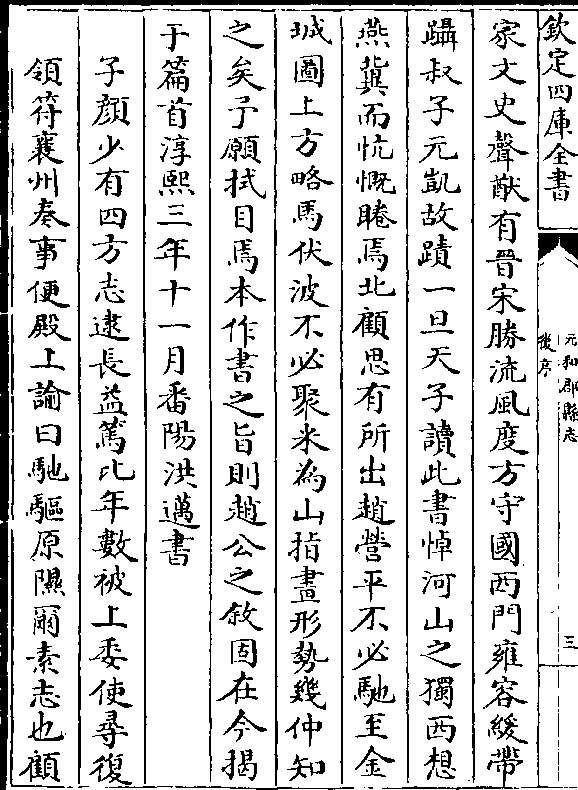 欽定四庫全書
元和郡縣志
後序
三
家文史聲猷有晉宋勝流風度方守國西門雍容緩帶
躡叔子元凱故蹟一旦天子讀此書悼河山之獨西想
燕冀而忼慨睠焉北顧思有所出趙營平不必馳至金
城圖上方略馬伏波不必聚米為山指畫形勢幾仲知
之矣予願拭目焉本作書之旨則趙公之敘固在今揭
于篇首淳熙三年十一月番陽洪邁書
子顏少有四方志逮長益篤比年數被上委使尋復
領符襄州奏事便殿上諭曰馳驅原隰爾素志也顧